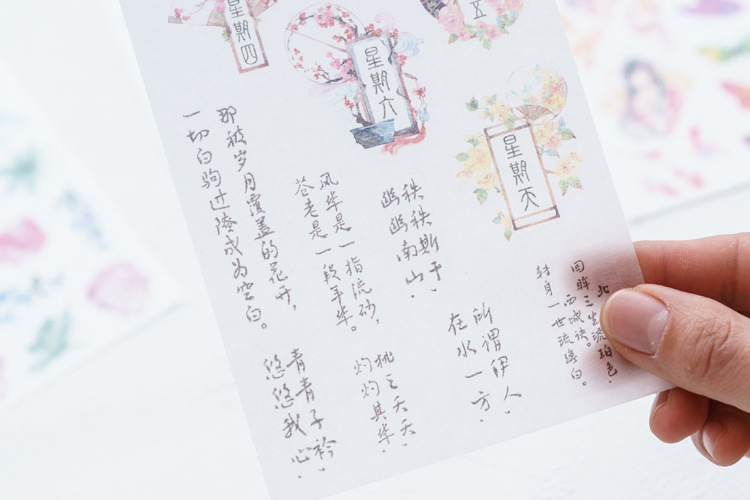 星期四
星期六
五
星期天
那被岁月覆盖的花开，
一切白驹过隙成为空白。
风华是一指流砂，
苍老是一段年华。
秩秩斯干，
幽幽南山。
北
回眸三生琥珀色，
西城诀。
转身一世琉璃白。
青青子衿，
悠悠我心。
桃之夭夭，
灼灼其华。
所谓伊人，
在水一方。